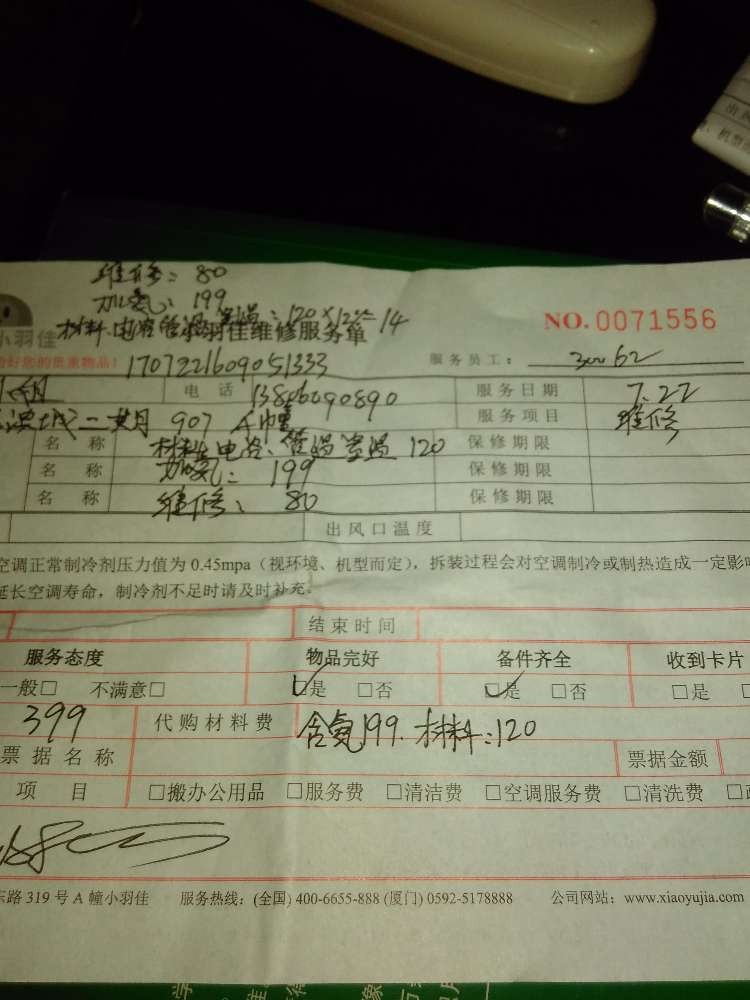 维修：80
加氨：199
小羽佳
材料：电容管温室温：120×12%=14
小羽佳维修服务单
NO.0071556
好您的贵重物品！
1707221609051333
服务员工：
电 话
13806090890
服务日期
7.22
城二期 907 A幢
服务项目
维修
名 称
材料：电容、管温室温 120
保修期限
名 称
加氨：199
保修期限
名 称
维修：80
保修期限
出风口温度
空调正常制冷剂压力值为 0.45mpa（视环境、机型而定），拆装过程会对空调制冷或制热造成一定影
延长空调寿命，制冷剂不足时请及时补充。
结束时间
服务态度
物品完好
备件齐全
收到卡片
一般□ 不满意□
□是 □否
□是 □否
□是
399
代购材料费
含氨199. 材料：120
票据名称
票据金额
项 目
□搬办公用品 □服务费 □清洁费 □空调服务费 □清洗费
路 319 号 A 幢小羽佳 服务热线：(全国) 400-6655-888 (厦门) 0592-5178888 公司网站：www.xiaoyujia.com